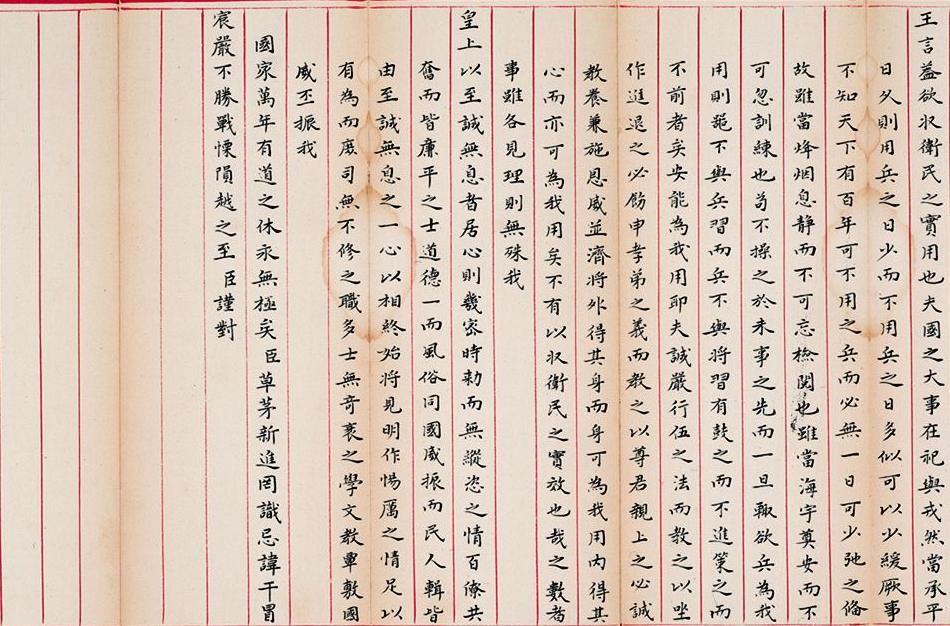 王言蓋欲收衛民之實用也夫國之大事在祀與戎然當承平
日久則用兵之日少而不用兵之日多似可以少緩厥事
不知天下有百年可不用之兵而必無一日可少弛之備
故雖當烽烟息靜而不可忘檢閱也雖當海宇奠安而不
可忽訓練也苟不操之於未事之先而一旦輙欲兵為我
用則龉不與兵習而兵不與將習有鼓之而不進策之而
不前者矣安能為我用耶夫誠嚴行伍之法而教之以坐
作進退之必飭申孝弟之義而教之以尊君親上之必誠
教養兼施恩威並濟將外得其身而身可為我用內得其
心而亦可為我用矣不有以收衛民之實效也哉之數者
事雖各見理則無殊我
皇上以至誠無息者居心則幾密時勅而無縱恣之情百僚共
奮而皆廉平之士道德一而風俗同國威振而民人輯皆
由至誠無息之一心以相終始將見明作惕厲之情足以
有為而庶司無不修之職多士無奇衺之學文教覃敷國
威丕振我
國家萬年有道之休永無極矣臣草茅新進罔識忌諱干冒
宸嚴不勝戰慄隕越之至臣謹對